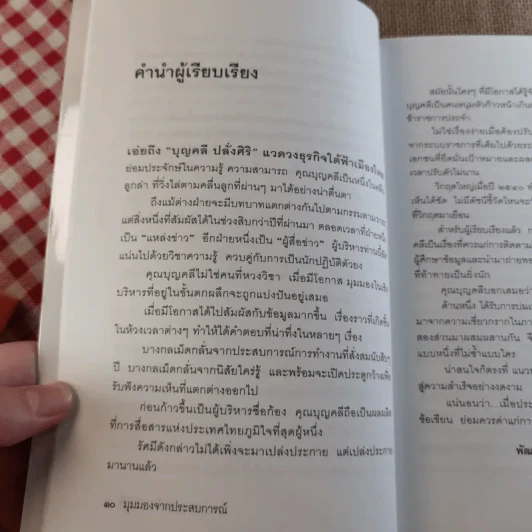 คำนำผู้เรียบเรียง
เอ่ยถึง "บุญคลี ปลั่งศิริ" แวดวงธุรกิจใต้ฟ้าเมืองไทย
ย่อมประจักษ์ในความรู้ ความสามารถ คุณบุญคลีเป็นหนึ่งใน
ลูกล่า ที่วิ่งไล่ตามคลื่นลูกที่ผ่านๆ มาได้อย่างน่าตื่นตา
ถึงแม้ต่างฝ่ายจะมีบทบาทแตกต่างกันไปตามกรรมตามวาระ
แต่สิ่งหนึ่งที่สัมผัสได้ในช่วงสิบกว่าปีที่ผ่านมา ตลอดเวลาที่ฝ่ายหนึ่ง
เป็น "แหล่งข่าว" อีกฝ่ายหนึ่งเป็น "ผู้สื่อข่าว" ผู้บริหารท่านนี้
แน่นไปด้วยวิชาความรู้ ควบคู่กับการเป็นนักปฏิบัติตัวยง
คุณบุญคลีไม่ใช่คนที่หวงวิชา เมื่อมีโอกาส มุมมองใน
บริหารที่อยู่ในชั้นตกผลึกจะถูกแบ่งปันอยู่เสมอ
เมื่อมีโอกาสได้ไปสัมผัสกับข้อมูลมากขึ้น เรื่องราวที่เกิดขึ้น
ในห้วงเวลาต่างๆ ทำให้ได้คำตอบที่น่าทึ่งในหลายๆ เรื่อง
บางกลเม็ดกลั่นจากประสบการณ์การทำงานที่สั่งสมนับสิบๆ
ปี บางกลเม็ดกลั่นจากนิสัยใคร่รู้ และพร้อมจะเปิดประตูกว้างเพื่อ
รับฟังความเห็นที่แตกต่างออกไป
ก่อนก้าวขึ้นเป็นผู้บริหารชื่อก้อง คุณบุญคลีถือเป็นผลผลิต
ที่การสื่อสารแห่งประเทศไทยภูมิใจที่สุดผู้หนึ่ง
รัศมีดังกล่าวไม่ได้เพิ่งจะมาเปล่งประกาย แต่เปล่งประกาย
มานานแล้ว
๑๐ มุมมองจากประสบการณ์
สมัยนั้นใครๆ ที่มีโอกาสได้รู้จัก
บุญคลีเป็นคนหนุ่มหัวก้าวหน้าเกิน
ข้าราชการประจำ
ไม่ใช่เรื่องง่ายเมื่อต้องปรับ
จากระบบราชการที่เต็มไปด้วยระ
เอกชนที่ยึดมั่นเป้าหมายและผล
เวลาปรับตัวไม่นาน
วิกฤตใหญ่เมื่อปี ๒๕๔๐
เห็นได้ชัด ไม่มีดัชนีชี้วัดไหนจะ
ที่วิกฤตมาเยือน
สำหรับผู้เรียบเรียงแล้ว
คลีเป็นเรื่องที่ควรแก่การติดตาม
ผู้ศึกษาข้อมูลและนำมาถ่ายทอ
ที่ท้าทายเป็นยิ่งนัก
คุณบุญคลีบอกเสมอว่า
ด้านหนึ่ง ได้รับการบ่ม
มาจากความเชี่ยวกรากในภา
สองส่วนมาผสมผสานกัน จึ
แบบหนึ่งที่ไม่ซ้ำแบบใคร
น่าสนใจก็ตรงที่ แนวท
สู่ความสำเร็จอย่างงดงาม
แน่นอนว่า...เมื่อประ
ข้อเขียน ย่อมควรค่าแก่การ
พัฒ